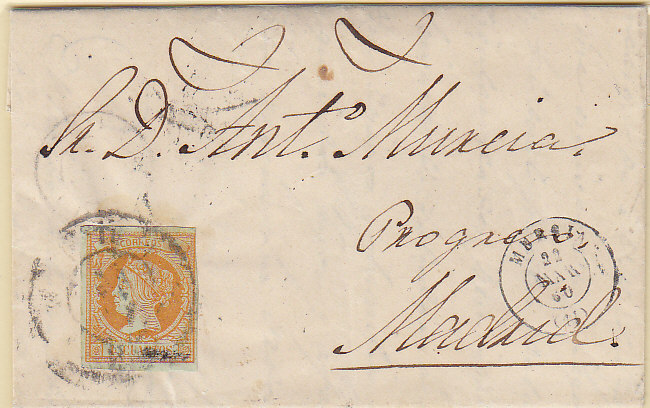 Sr. D. Ant.º Murcia.
Progreso
Madrid.
MURCIA
22
MAR
60
CORREOS